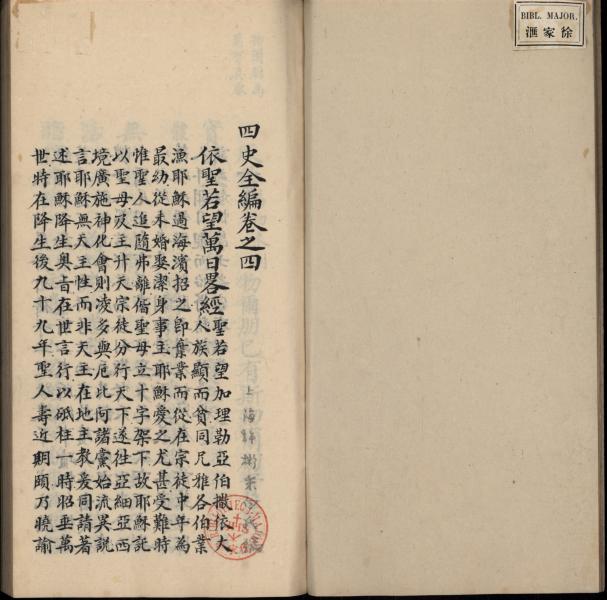 BIBL. MAJOR.
徐家滙
四史全編卷之四
上海許
依聖若望萬日畧經聖若望加理勒亞伯撒依大
人族顯而貧同兄雅各伯業
漁耶穌過海濱招之即棄業而從在宗徒中年為
最幼從未婚娶潔身事主耶穌愛之尤甚受難時
惟聖人追隨弗離偕聖母立十字架下故耶穌託
以聖母及主升天宗徒分行天下遂徃亞細亞西
境廣施神化會則淩多與厄比阿諸黨始流異說
言耶穌無天主性而非天主在地主教爰同請著
述耶穌降生奥旨在世言行以砥柱一時昭垂萬
世時在降生後九十九年聖人壽近期頤乃曉諭